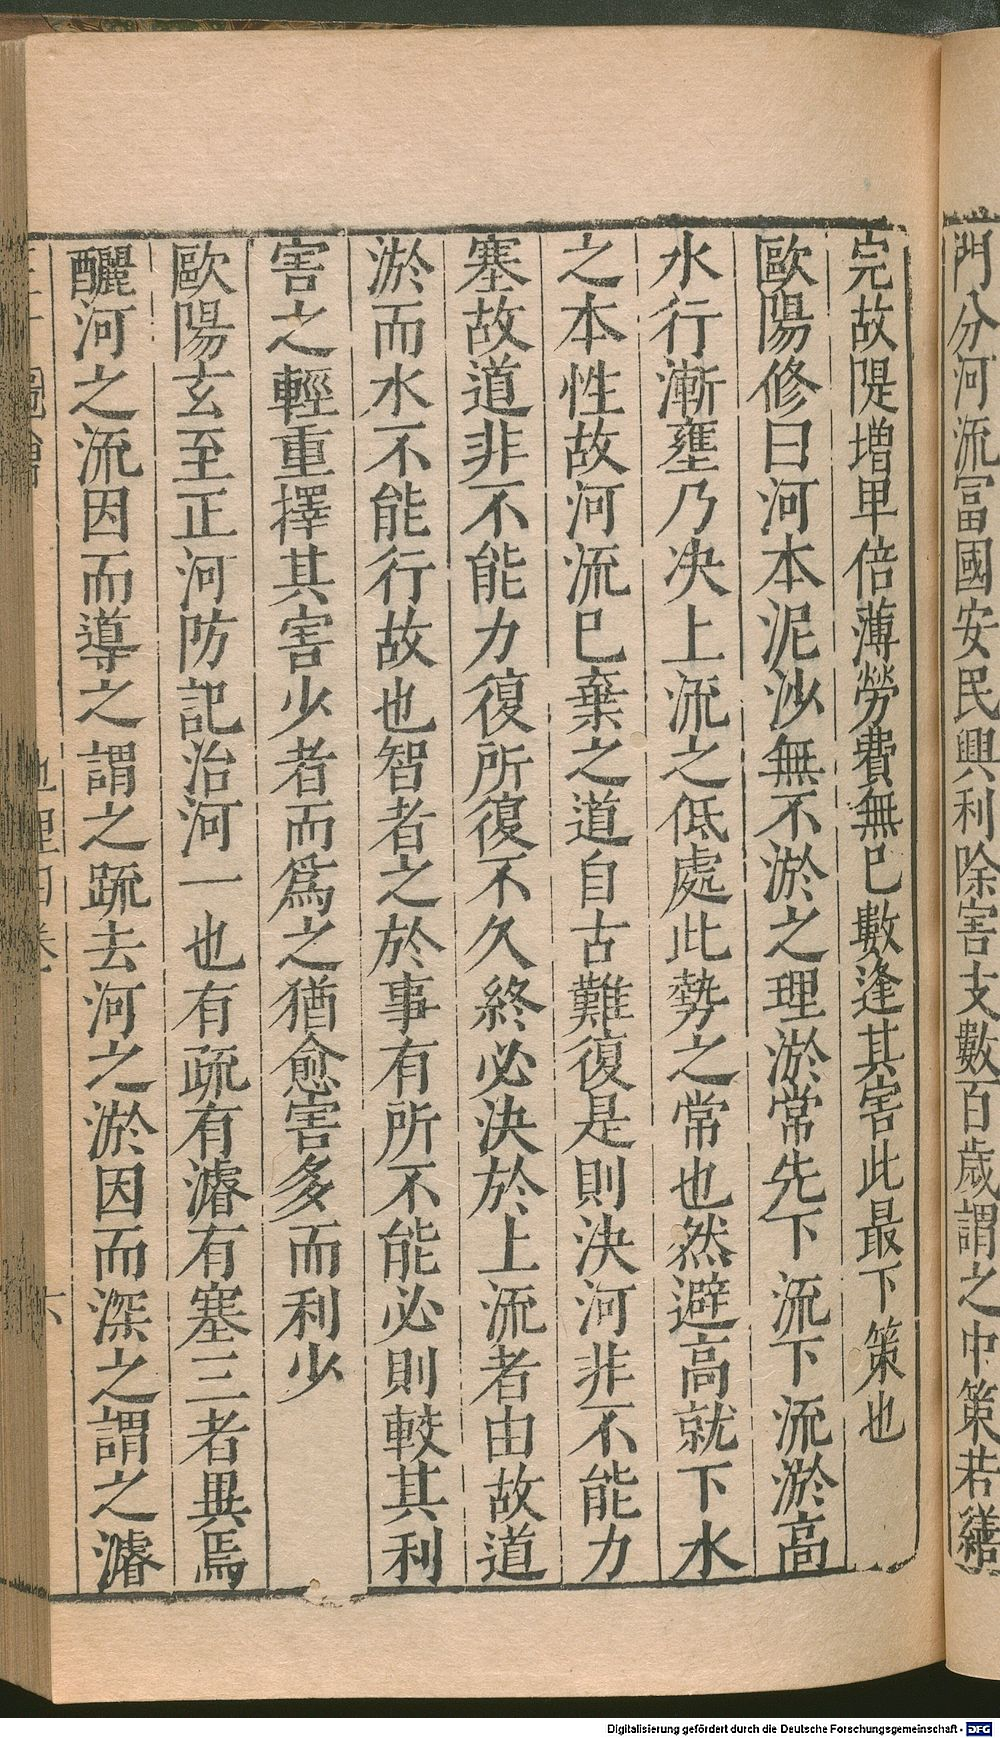 門分河流冨國安民興利除害支數百歲謂之中策若繕
完故隄增卑倍薄勞費無已數逢其害此最下策也
歐陽修曰河本泥沙無不淤之理淤常先下流下流淤高
水行漸壅乃决上流之低處此勢之常也然避高就下水
之本性故河流已棄之道自古難復是則决河非不能力
塞故道非不能力復所復不久終必决於上流者由故道
淤而水不能行故也智者之於事有所不能必則較其利
害之輕重擇其害少者而爲之猶愈害多而利少
歐陽玄至正河防記治河一也有疏有濬有塞三者異焉
釃河之流因而導之謂之疏去河之淤因而深之謂之濬
圖會 地理四卷 六
Digitalisierung gefördert durch die Deutsche Forschungsgemeinschaft - DFG